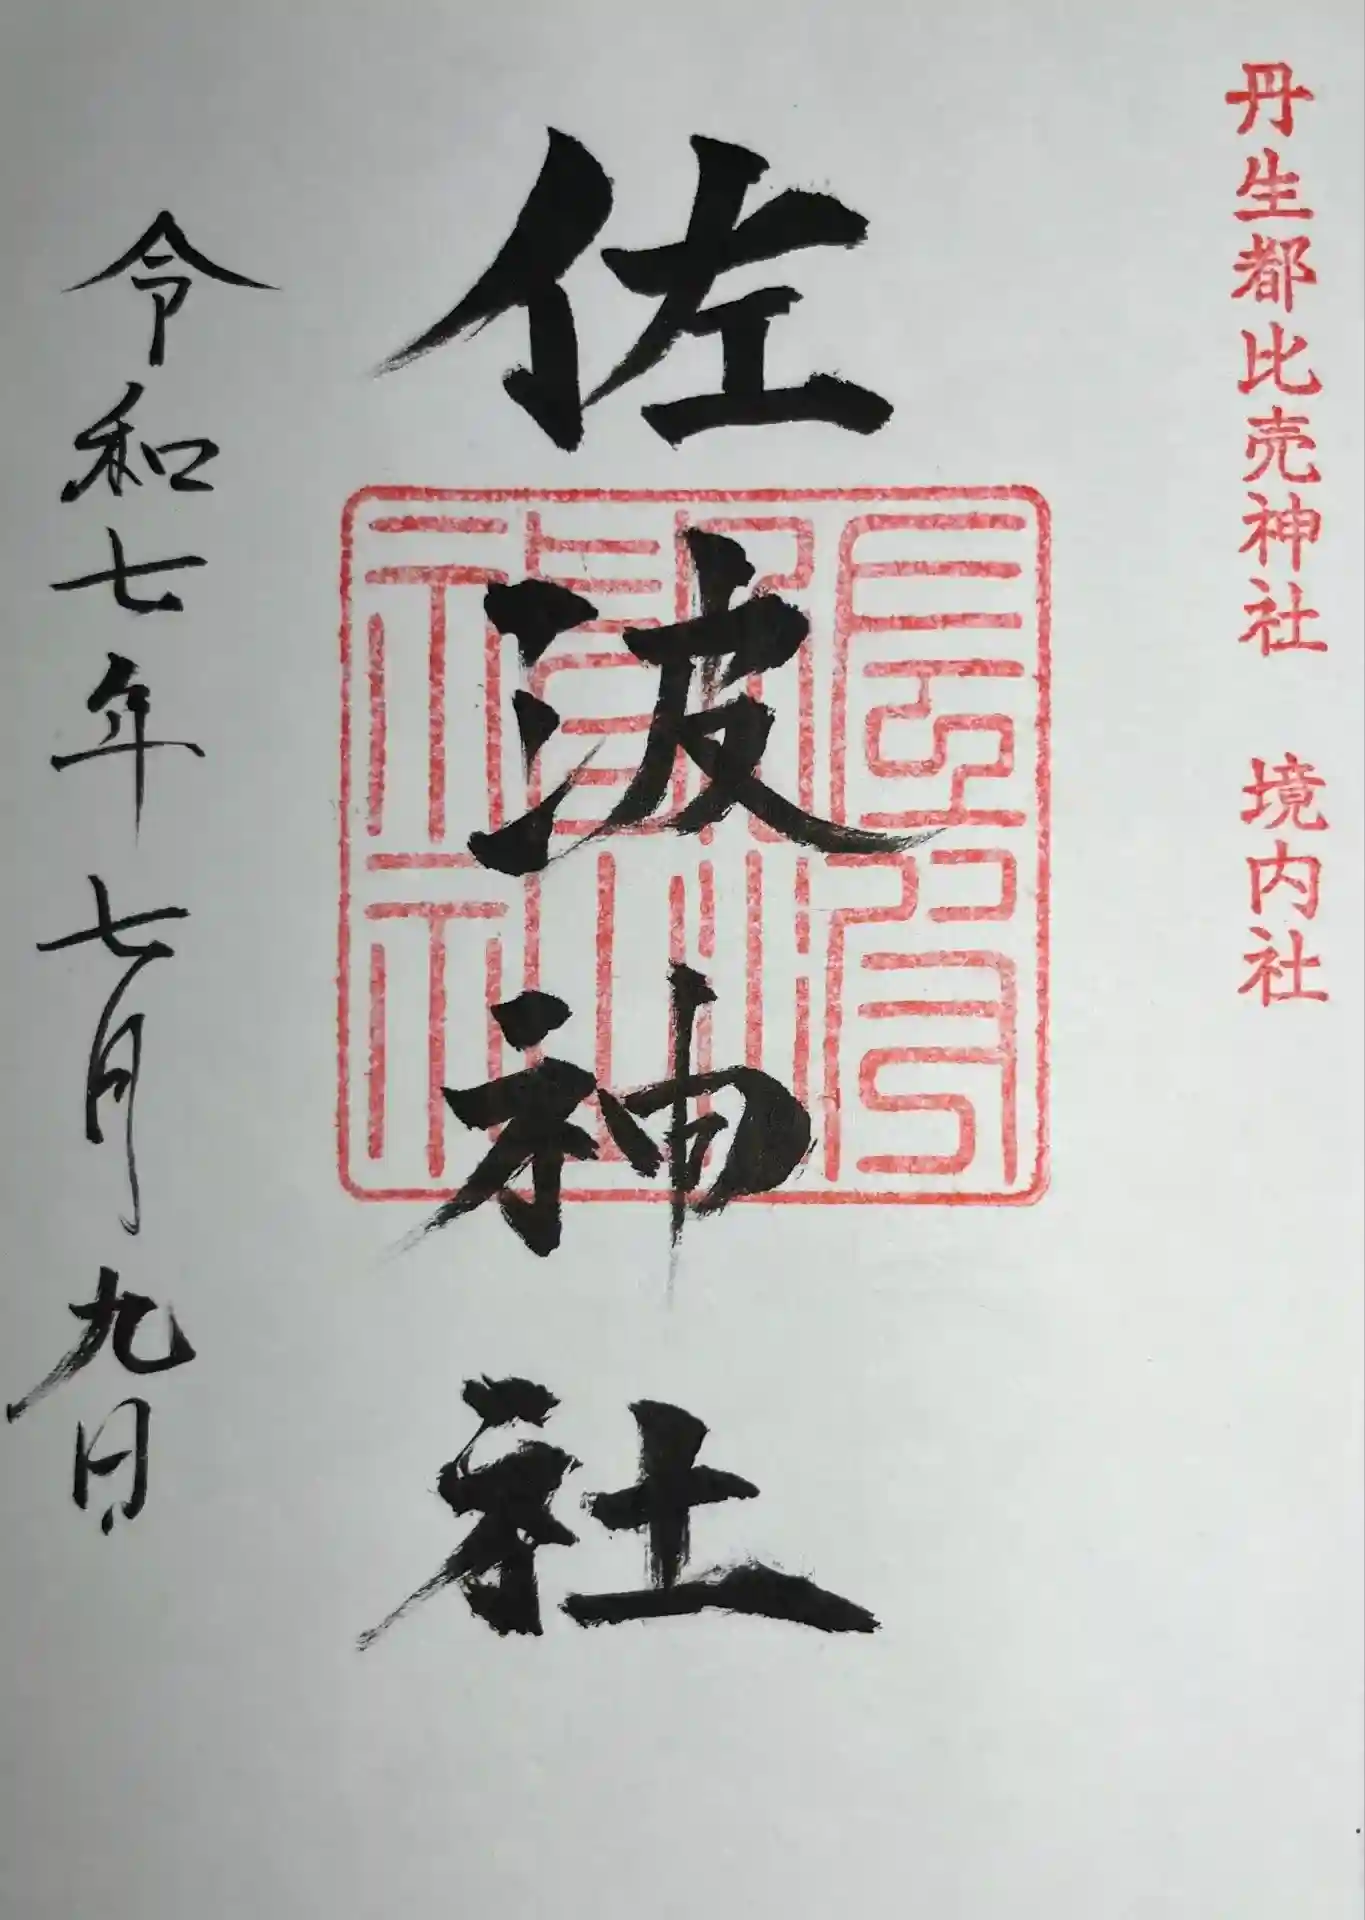 丹生都比売神社　境内社
佐波神社
令和七年七月九日